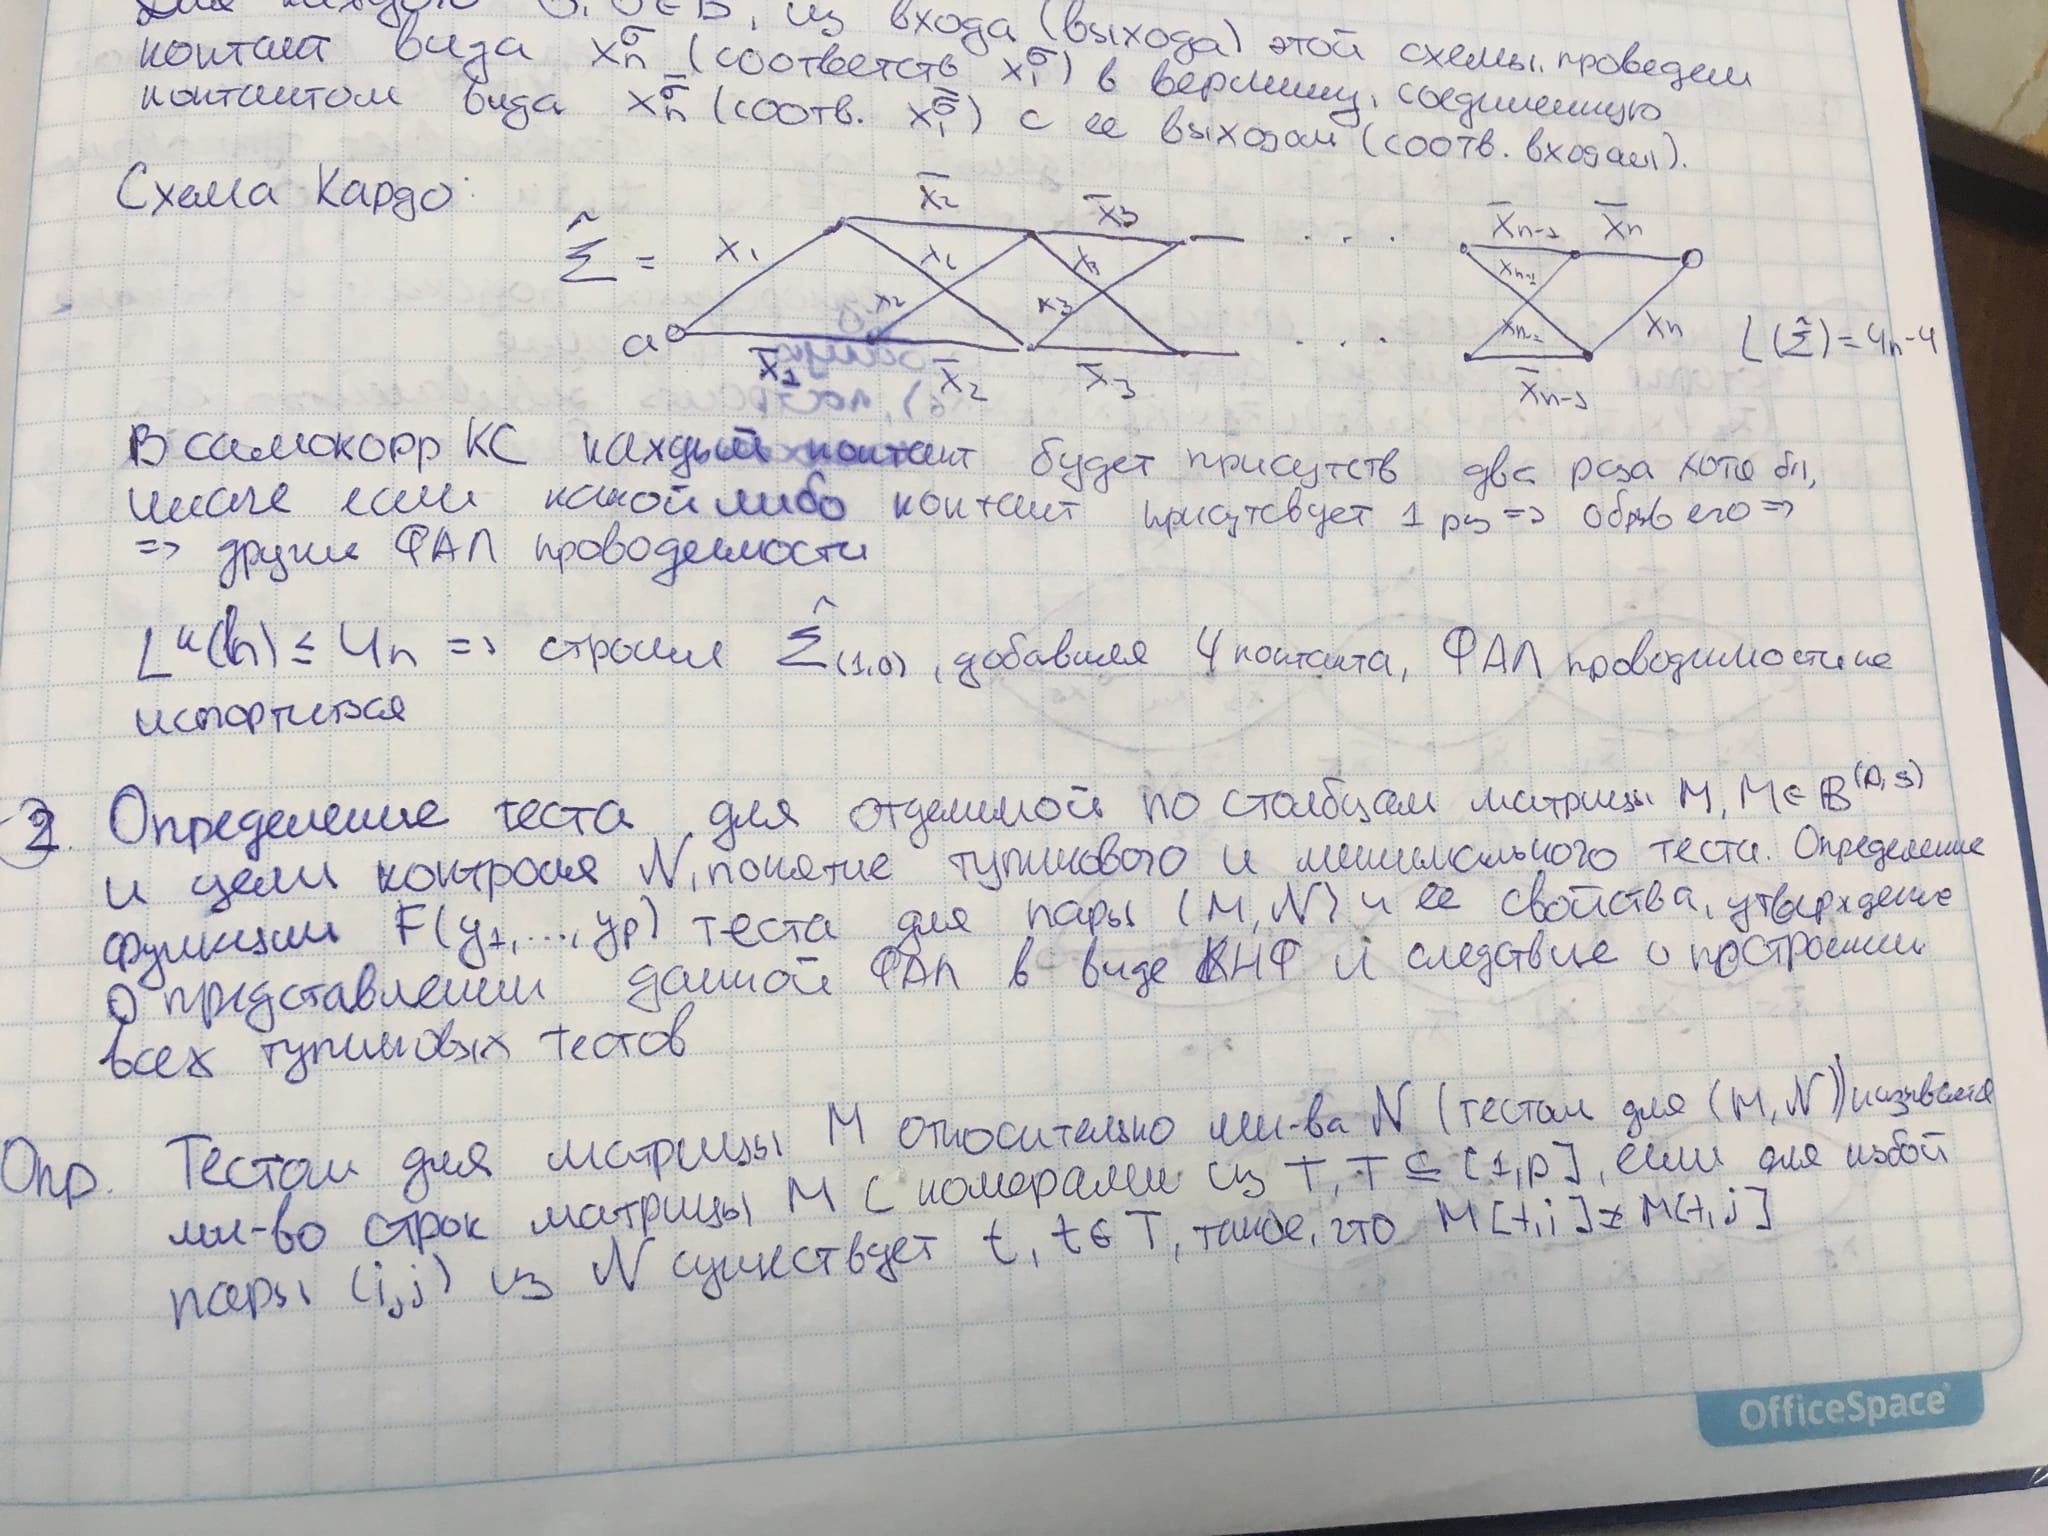 для каждого σ, σ∈B, из входа (выхода) этой схемы проведем
контакт вида xₙ^σ (соответств x₁^σ) в вершину, соединенную
контактом вида xₙ^σ̄ (соотв. x₁^σ̄) с ее выходом (соотв. входом).
Схема Кардо:
Σ̂ =
a
x₁
x̄₂
x̄₃
x₂
x₃
x̄ₙ₋₁
x̄ₙ
xₙ₋₁
. . .
x₂
x₃
xₙ₋₁
xₙ
L(Σ̂) = 4n-4
x̄₁
x̄₂
x̄₃
. . .
x̄ₙ₋₁
В самокорр КС каждый контакт будет присутств два раза хотя бы,
иначе если какой либо контакт присутсвует 1 раз => обрыв его =>
=> другие ФАЛ проводимости
Lᵏ(lₙ) ≤ 4n => строим Σ̂₍₁,₀₎, добавляя 4 контакта, ФАЛ проводимости не
испортиться
2. Определение теста для отделимой по столбцам матрицы M, M∈B^(p,s)
и цели контроля N, понятие тупикового и минимального теста. Определение
функции F(y₁,...,yₚ) теста для пары (M,N) и ее свойства, утверждение
о представлении данной ФАЛ в виде КНФ и следствие о построении
всех тупиковых тестов
Опр. Тестом для матрицы M относительно мн-ва N (тестом для (M,N)) называется
мн-во строк матрицы M с номерами из T, T ⊆ [1,p], если для любой
пары (i,j) из N существует t, t∈T, такое, что M[t,i] ≠ M[t,j]
OfficeSpace